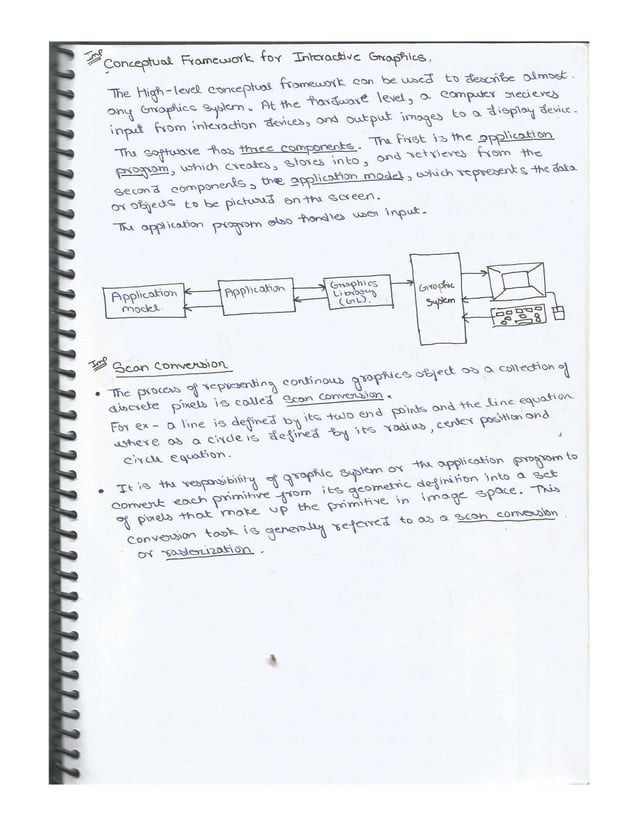 Imp Conceptual Framework for Interactive Graphics.
The High-level conceptual framework can be used to describe almost.
any Graphics System. At the hardware level, a computer recieves
input from interaction devices, and output images to a display device.
The software has three components. The first is the application
program, which creates, stores into, and retrieves from the
second components, the application model, which represents the data
or objects to be pictured on the screen.
The application program also handles user input.
Application model.
Application
Graphics Library (GL).
Graphic System
Imp Scan Conversion
• The process of representing continous graphics object as a collection of
discrete pixels is called Scan Conversion.
For ex - a line is defined by its two end points and the line equation
where as a circle is defined by its radius, center position and
circle equation.
• It is the responsibility of graphic system or the application program to
convert each primitive from its geometric definition into a set
of pixels that make up the primitive in image space. This
conversion task is generally referred to as a scan conversion
or rasterization.